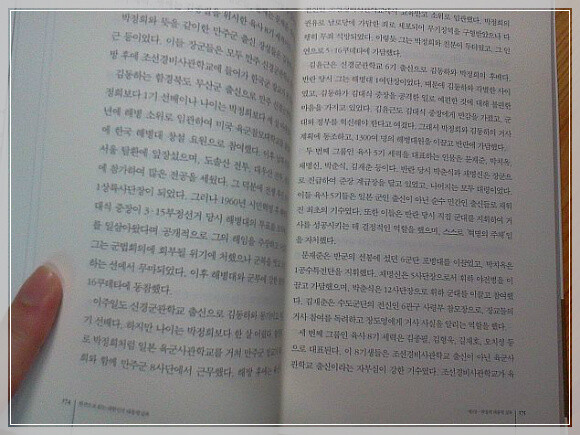 박정희와 뜻을 같이한 만주군 출신 장성들도
근 등이었다. 이들 장군들은 모두 만주 신경군관학교
방 후에 조선경비사관학교에 들어가 한국군 장교가
김동하는 함경북도 무산군 출신으로 만주 신경
정희보다 1기 선배이나 나이는 박정희보다
년에 해병 소위로 임관하여 미국 육군참모대학교
에 한국 해병대 창설 요원으로 참여했다. 이후
서울 탈환에 앞장섰으며, 도솔산 전투,
에 참가하여 많은 전공을 세웠다. 그 덕분에 전쟁
1상륙사단장이 되었다. 그러나 1960년
대식 중장이 3·15부정선거 당시 해병대의 무표로
를 일삼아왔다며 공개적으로 그의 해임을
그는 군법회의에 회부될 위기에 처했으나 군복을
하는 선에서 무마되었다. 이후 해병대와 군부에
16쿠데타에 동참했다.
이주일도 신경군관학교 출신으로 김동하와
기 선배다. 하지만 나이는 박정희보다 한 살
로 박정희처럼 일본 육군사관학교를 거쳐 만주군 장교
희와 함께 만주군 8사단에서 근무했다. 해방 후에는
374
교육받고 소위로 임관했다. 박정희의
권유로 남로당에 가담한 죄로 체포되어 무기징역을 구형받았으나 다
행히 무죄 석방되었다. 이렇듯 그는 박정희와 친분이 두터웠고, 그 인
연으로 5·16쿠데타에 가담했다.
김윤근은 신경군관학교 6기 출신으로 김동하와 박정희의 후배다.
반란 당시 그는 해병대 1여단장이었다. 때문에 김동하와 각별한 사이
였고, 김동하가 김대식 중장을 공격한 일로 예편한 것에 대해 불만한
마음을 가지고 있었다. 김윤근도 김대식 중장에게 반감을 가졌고, 군
대와 정부를 혁신해야 한다고 여겼다. 그래서 박정희와 김동하의 거사
계획에 동조하고, 1300여 명의 해병대원을 이끌고 반란에 가담했다.
두 번째 그룹인 육사 5기 세력을 대표하는 인물은 문재준, 박치옥,
채명신, 박춘식, 김재춘 등이다. 반란 당시 박춘식과 채명신은 장군으
로 진급하여 준장 계급장을 달고 있었고, 나머지는 모두 대령이었다.
이들 육사 5기들은 일본 군인 출신이 아닌 순수 민간인 출신들로 채워
진 최초의 기수였다. 또한 이들은 반란 당시 직접 군대를 지휘하여 거
사를 성공시키는 데 결정적인 역할을 했으며, 스스로 '혁명의 주체'임
을 자처했다.
문재준은 반군의 선봉에 섰던 6군단 포병대를 이끌었고, 박치옥은
1공수특전단을 지휘했다. 채명신은 5사단장으로서 휘하 야전병을 이
끌고 가담했으며, 박춘식은 12사단장으로 휘하 군대를 이끌고 참여했
다. 김재춘은 수도군단의 전신인 6관구 사령부 참모장으로, 장교들의
거사 참여를 독려하고 장도영에게 거사 사실을 알리는 역할을 했다.
세 번째 그룹인 육사 8기 세력은 김종필, 김형욱, 길재호, 오치성 등
으로 대표된다. 이 8기생들은 조선경비사관학교 출신이 아닌 육군사
관학교 출신이라는 자부심이 강한 기수였다. 조선경비사관학교가 육
375